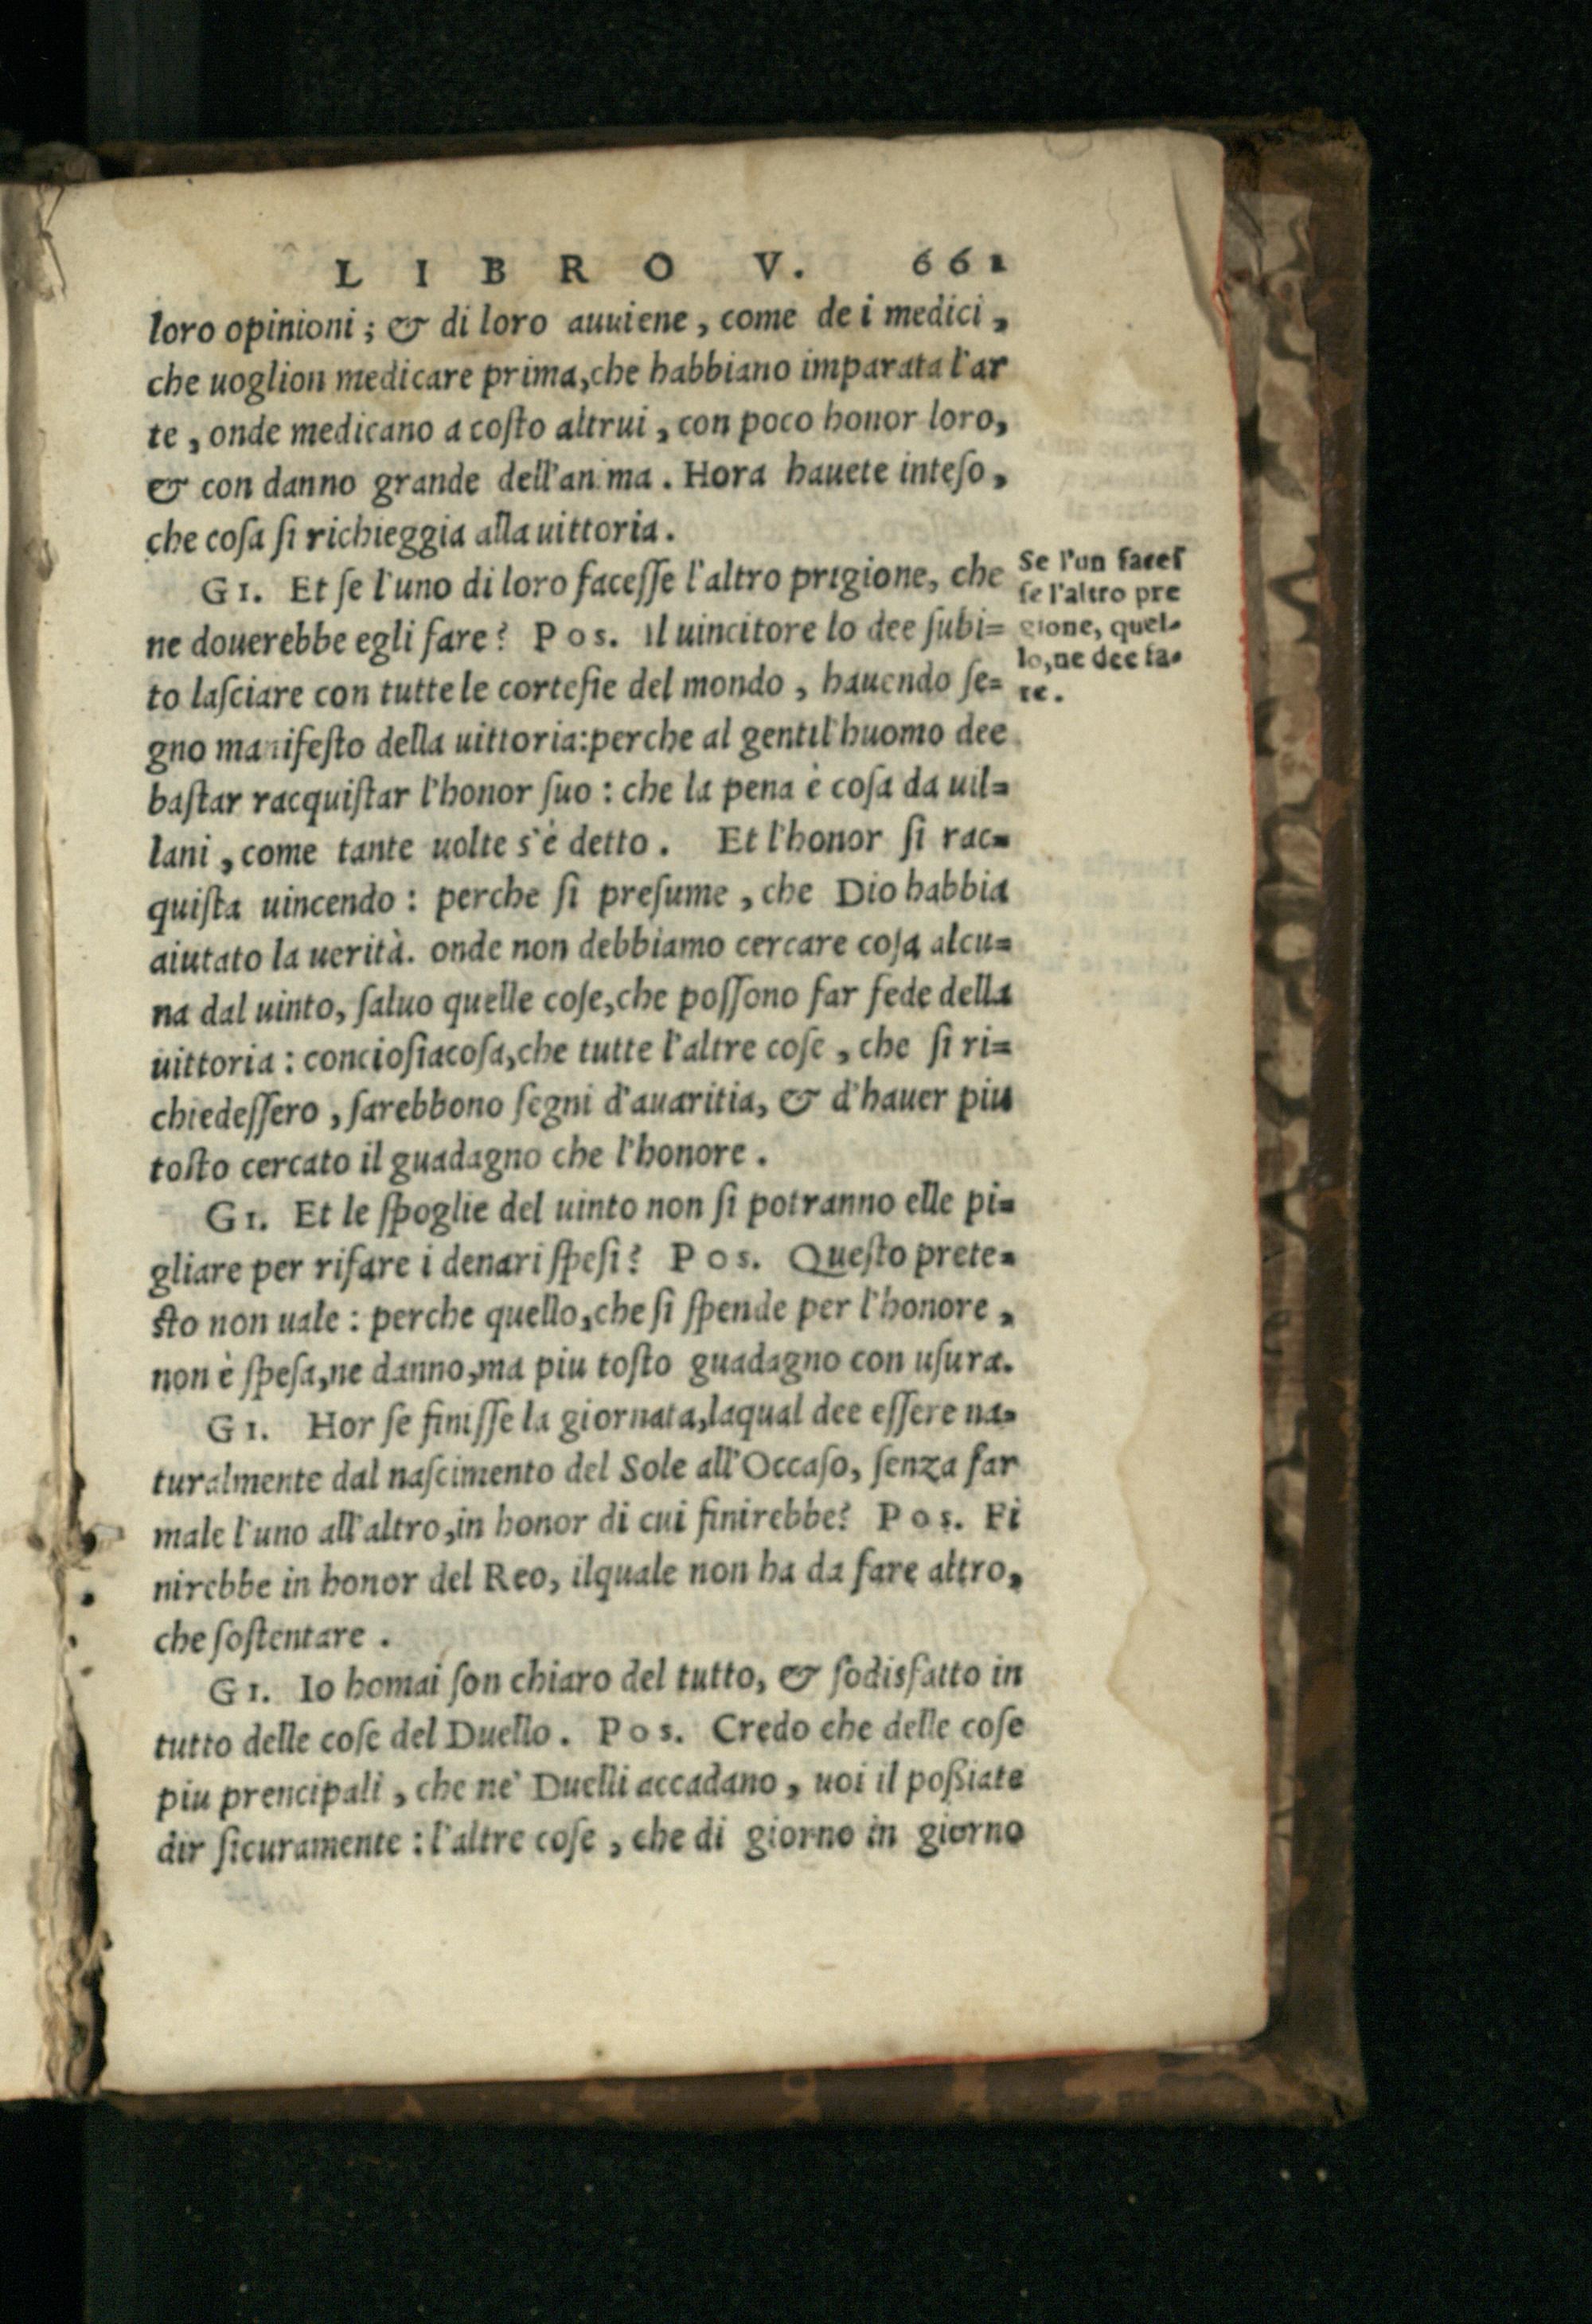 LIBRO V. 661
loro opinioni; & di loro auuiene, come de i medici,
che uoglion medicare prima, che habbiano imparata l'ar
te, onde medicano a coſto altrui, con poco honor loro,
& con danno grande dell'an ma. Hora hauete inteſo,
che coſa ſi richieggia alla uittoria.
GI. Et ſe l'uno di loro faceſſe l'altro prigione, che
ne douerebbe egli fare? Pos. Il uincitore lo dee ſubi=
to laſciare con tutte le corteſie del mondo, hauendo ſe=
gno manifeſto della uittoria: perche al gentil'huomo dee
baſtar racquiſtar l'honor ſuo: che la pena è coſa da uil=
lani, come tante uolte s'è detto. Et l'honor ſi rac=
quiſta uincendo: perche ſi preſume, che Dio habbia
aiutato la uerità. onde non debbiamo cercare coſa alcu=
na dal uinto, ſaluo quelle coſe, che poſſono far fede della
uittoria: concioſiacoſa, che tutte l'altre coſe, che ſi ri=
chiedeſſero, ſarebbono ſegni d'auaritia, & d'hauer piu
toſto cercato il guadagno che l'honore.
GI. Et le ſpoglie del uinto non ſi potranno elle pi=
gliare per rifare i denari ſpeſi? Pos. Queſto prete=
ſto non uale: perche quello, che ſi ſpende per l'honore,
non è ſpeſa, ne danno, ma piu toſto guadagno con uſura.
GI. Hor ſe finiſſe la giornata, laqual dee eſſere na=
turalmente dal naſcimento del Sole all'Occaſo, ſenza far
male l'uno all'altro, in honor di cui finirebbe? Pos. Fi
nirebbe in honor del Reo, ilquale non ha da fare altro,
che ſoſtentare.
GI. Io homai ſon chiaro del tutto, & ſodisfatto in
tutto delle coſe del Duello. Pos. Credo che delle coſe
piu prencipali, che ne' Duelli accadano, uoi il poßiate
dir ſicuramente: l'altre coſe, che di giorno in giorno
Se l'un faceſ
ſe l'altro pre
gione, quel=
lo, ne dee fa=
re.